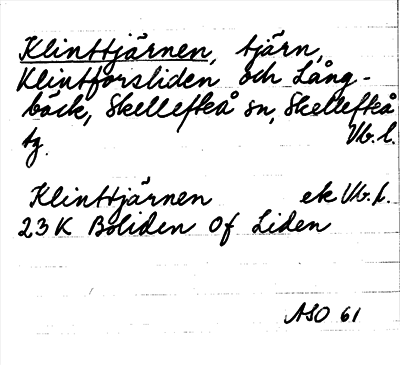 Klinttjärnen, tjärn,
Klintforsliden och Lång-
böck, Skellefteå sn, Skellefteå
tg. Vb. l.
Klinttjärnen ek Vb. l.
23 K Boliden Of Liden
ASO 61